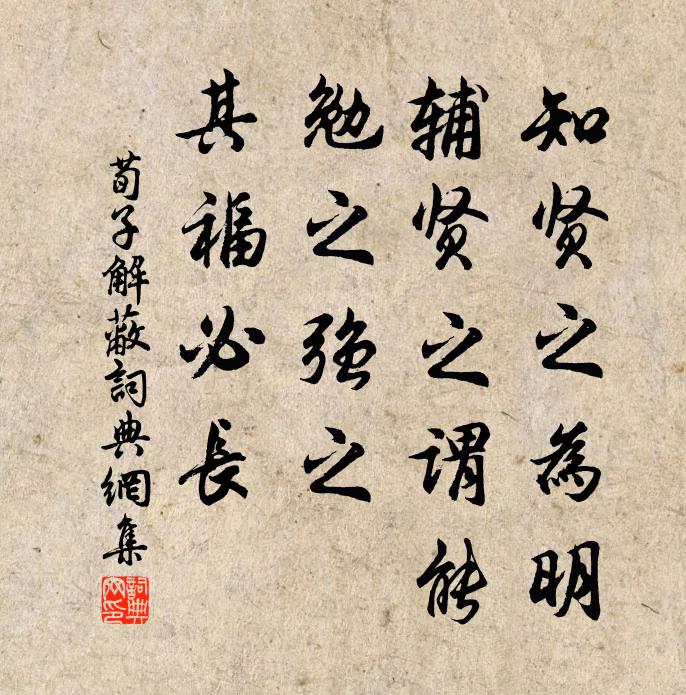 知贤之為明
辅贤之谓能
勉之强之
其福必長
荀子解蔽詞典網集
詞典网印